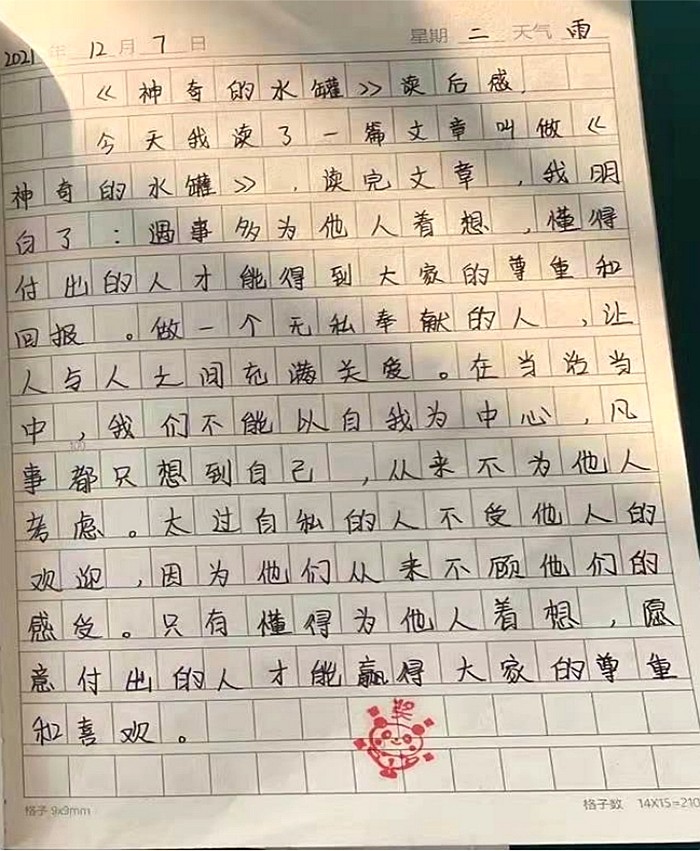 2021年 12月 7日 星期 二 天气 雨
《神奇的水罐》读后感.
今天我读了一篇文章叫做《
神奇的水罐》,读完文章,我明
白了:遇事多为他人着想,懂得
付出的人才能得到大家的尊重和
回报。做一个无私奉献的人,让
人与人之间充满关爱。在当治当
中,我们不能以自我为中心,凡
事都只想到自己,从来不为他人
考虑。太过自私的人不受他人的
欢迎,因为他们从来不顾他们的
感受。只有懂得为他人着想,愿
意付出的人才能赢得大家的尊重
和喜欢。
格子 9x9mm 格子数 14X15=210